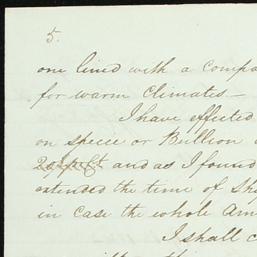 5.
one lined with a Compa
for warm Climates —
I have effected
on specie or Bullion
and as I found
extended the time of Sh
in case the whole Am
I shall c